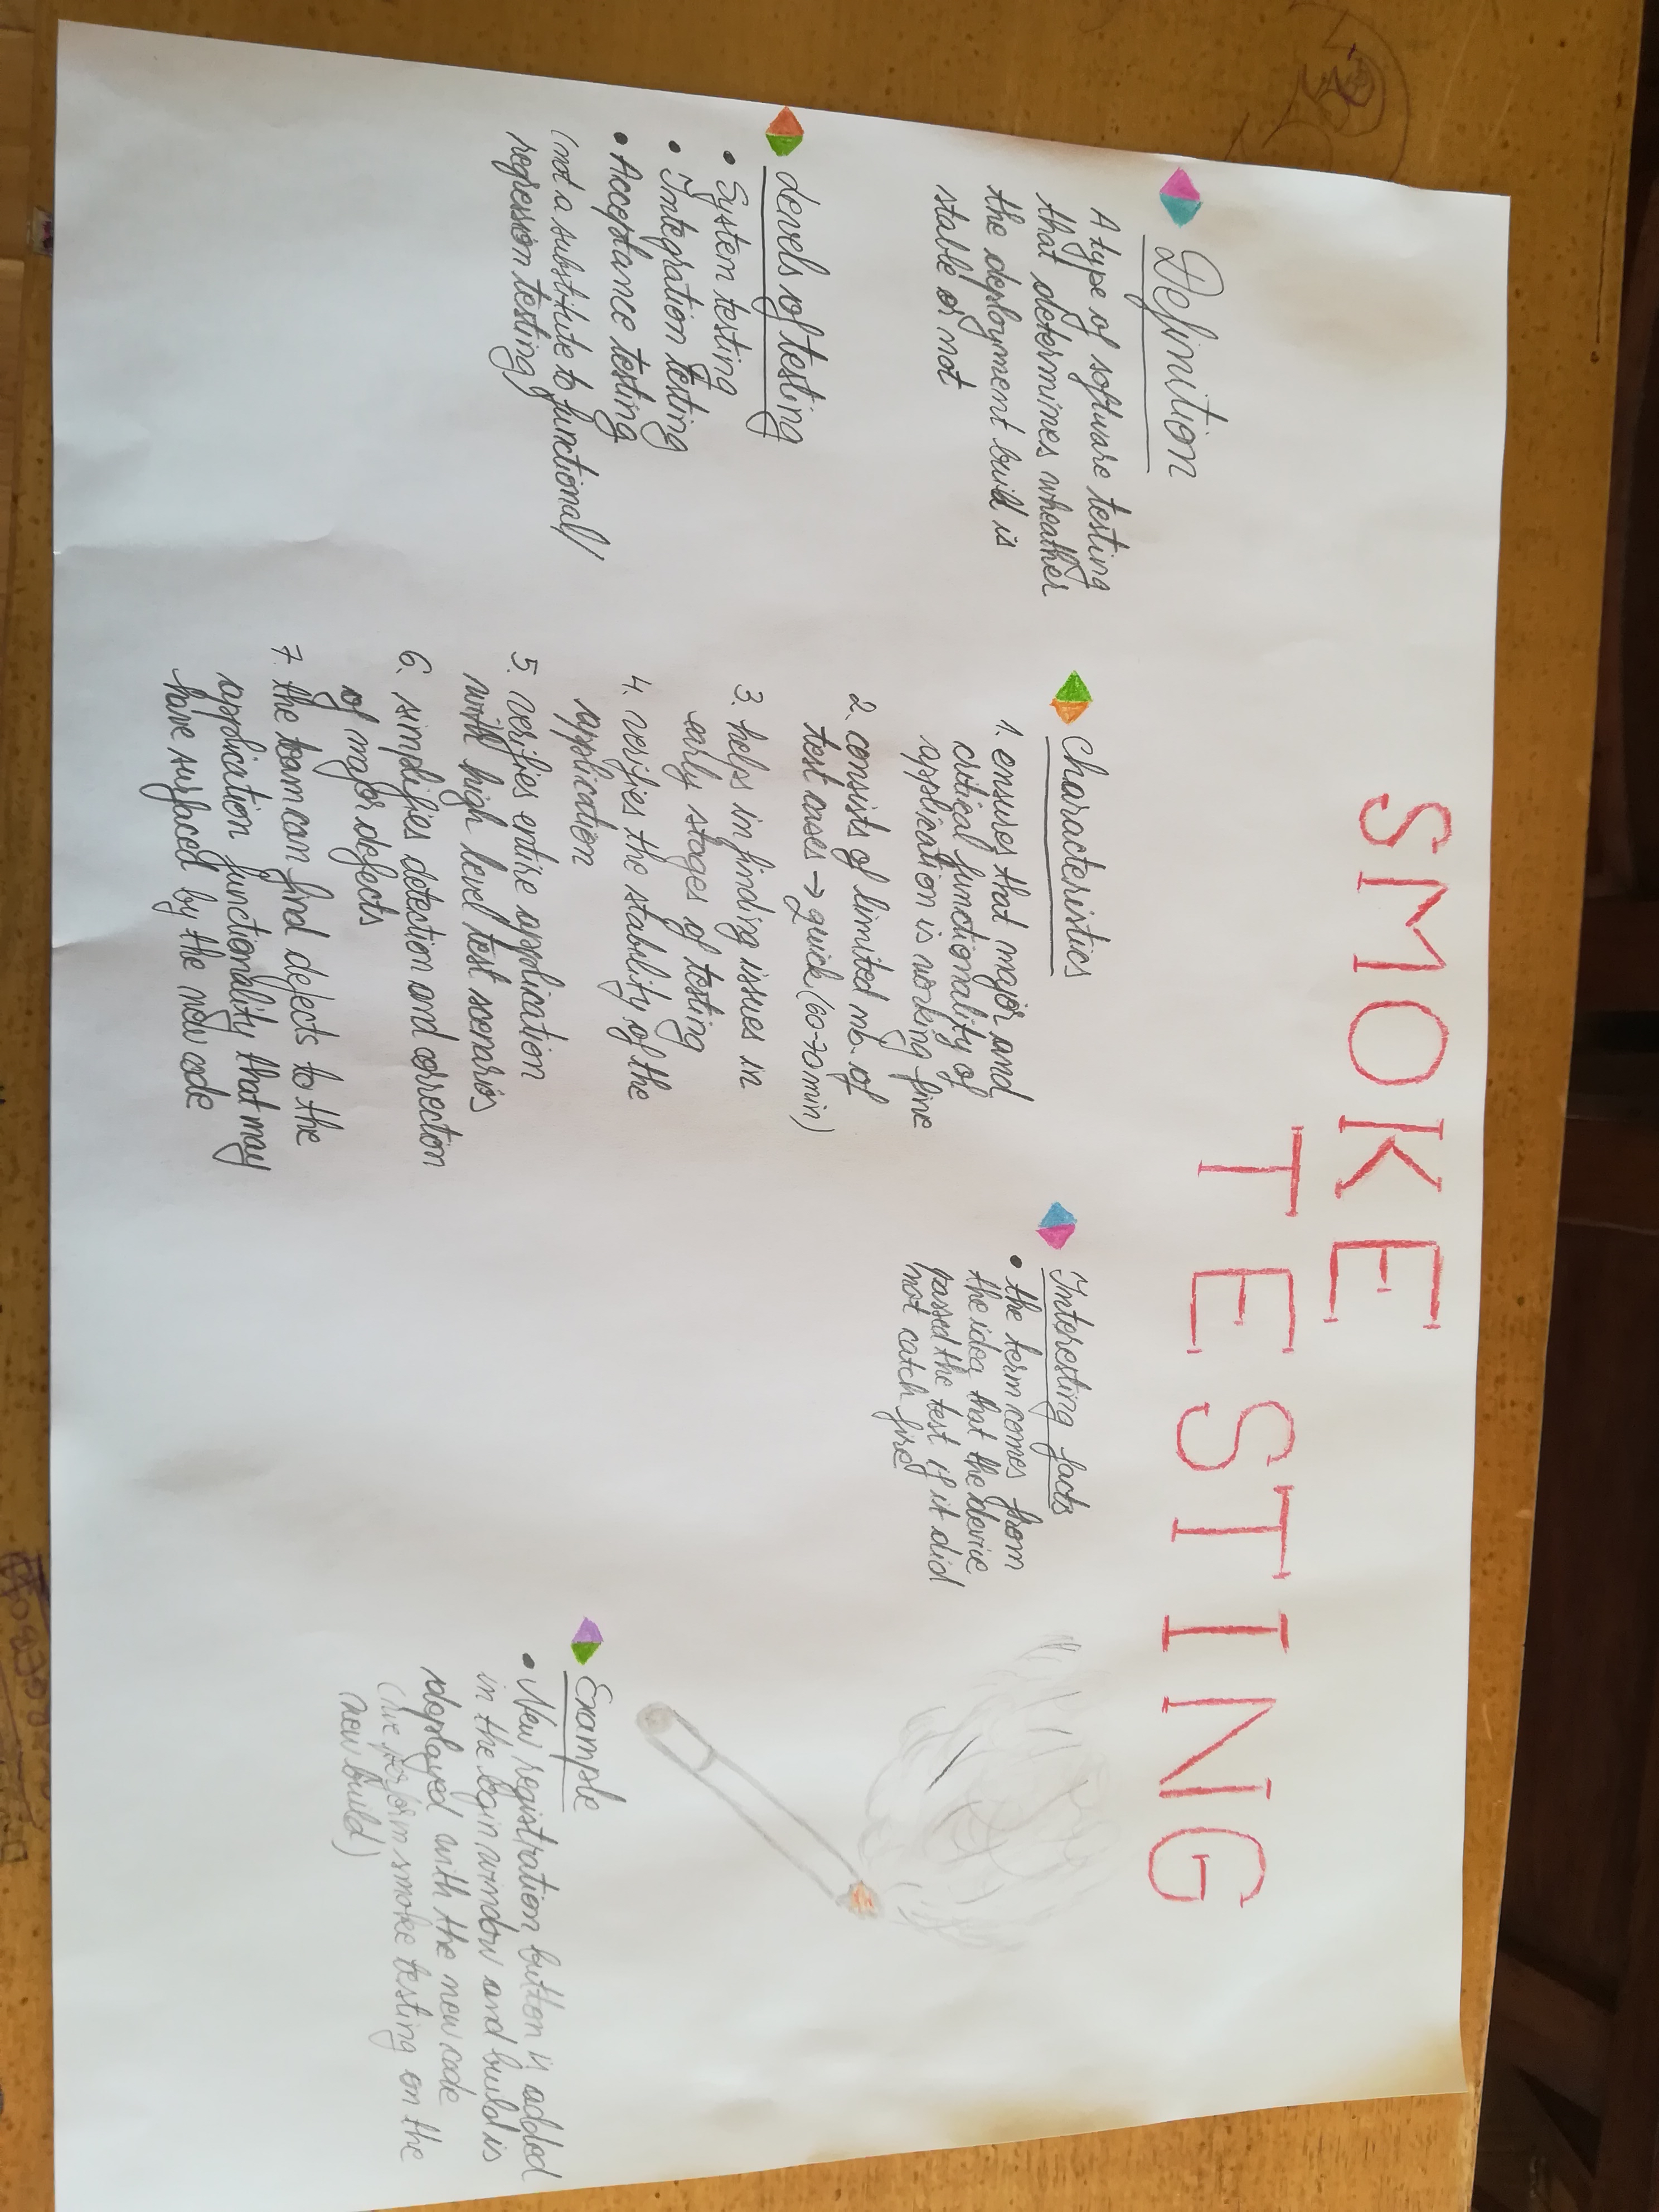 SMOKE
TESTING
Definition
A type of software testing
that determines wheather
the deployment build is
stable or not
Levels of testing
• System testing
• Integration testing
• Acceptance testing
(not a substitute to functional/
regression testing)
Characteristics
1. ensures that major and
critical functionality of
application is working fine
2. consists of limited nb. of
test cases → quick (60-70 min)
3. helps in finding issues in
early stages of testing
4. verifies the stability of the
application
5. verifies entire application
with high level test scenarios
6. simplifies detection and correction
of major defects
7. the team can find defects to the
application functionality that may
have surfaced by the new code
Interesting facts
• the term comes from
the idea that the device
passed the test if it did
not catch fire
Example
• New registration button is added
in the login window and build is
deployed with the new code
(we perform smoke testing on the
new build)